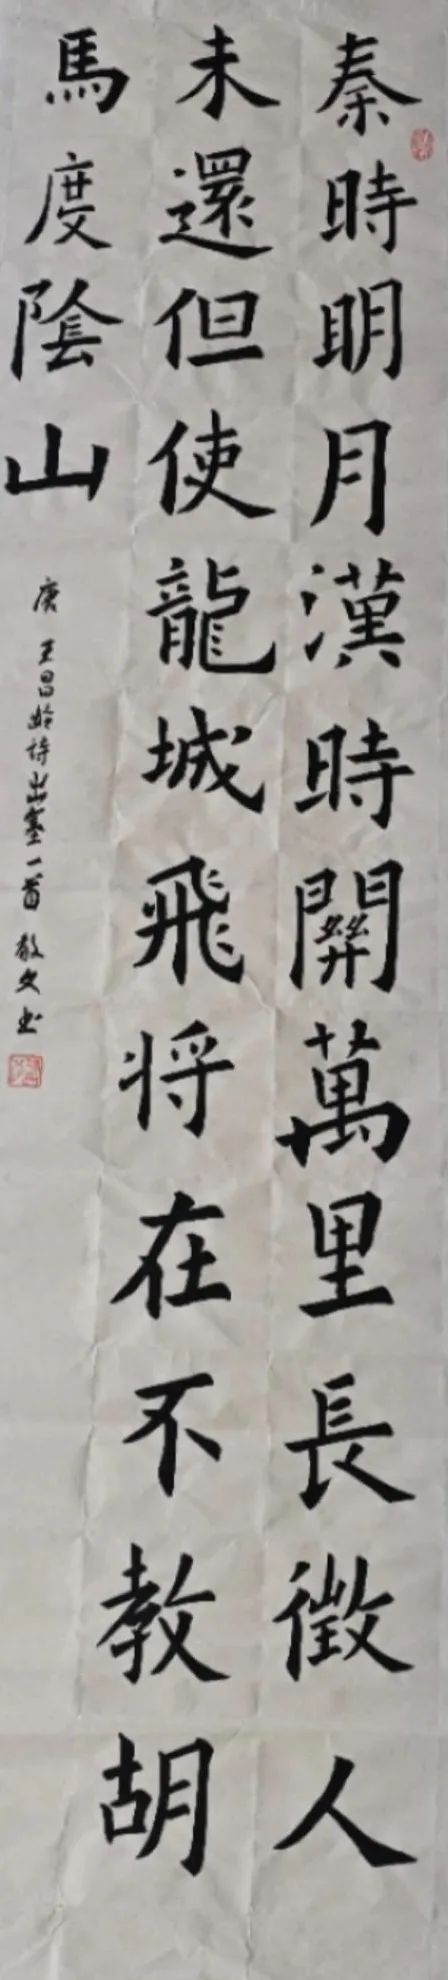 秦時明月漢時關萬里長徵人
未還但使龍城飛将在不教胡
馬度陰山
唐王昌龄詩出塞一首敬文书